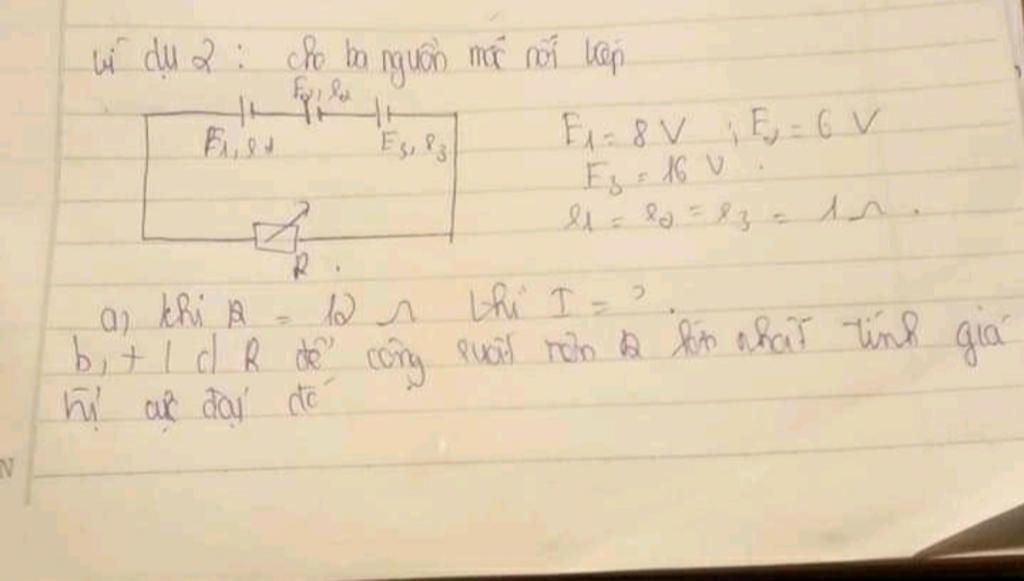 Ví dụ 2 : cho ba nguồn mắc nối tiếp
E2, r2
E1, r1
E3, r3
E1 = 8 V ; E2 = 6 V
E3 = 16 V .
r1 = r2 = r3 = 1 Ω .
R .
a, khi R = 12 Ω thì I = ? .
b, + / d R để công suất trên R lớn nhất tính giá
trị cực đại đó
N